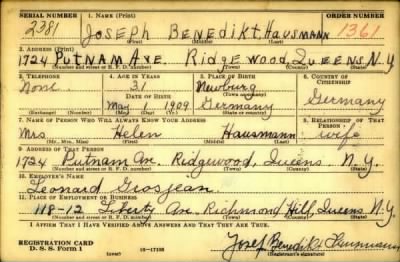 SERIAL NUMBER 1. NAME (Print) ORDER NUMBER
2381 JOSEPH BENEDIKT HAUSMANN 1361
(First) (Middle) (Last)
2. ADDRESS (Print)
1724 PUTNAM AVE. Ridgewood, Queens N.Y.
(Number and street or R. F. D. number) (Town) (County) (State)
3. TELEPHONE 4. AGE IN YEARS 5. PLACE OF BIRTH 6. COUNTRY OF CITIZENSHIP
None 31 Neuburg
DATE OF BIRTH (Town or county) Germany
May 1 1909 Germany
(Exchange) (Number) (Mo.) (Day) (Yr.) (State or country)
7. NAME OF PERSON WHO WILL ALWAYS KNOW YOUR ADDRESS 8. RELATIONSHIP OF THAT PERSON
Mrs Helen Hausmann wife
(Mr., Mrs., Miss) (First) (Middle) (Last)
9. ADDRESS OF THAT PERSON
1724 Putnam Ave. Ridgewood, Queens N.Y.
(Number and street or R. F. D. number) (Town) (County) (State)
10. EMPLOYER'S NAME
Leonard Grosjean
11. PLACE OF EMPLOYMENT OR BUSINESS
118-12 Liberty Ave. Richmond Hill, Queens N.Y.
(Number and street or R. F. D. number) (Town) (County) (State)
I AFFIRM THAT I HAVE VERIFIED ABOVE ANSWERS AND THAT THEY ARE TRUE.
REGISTRATION CARD
D. S. S. Form 1 16-17105 Josef Benedikt Hausmann
(Registrant's signature)